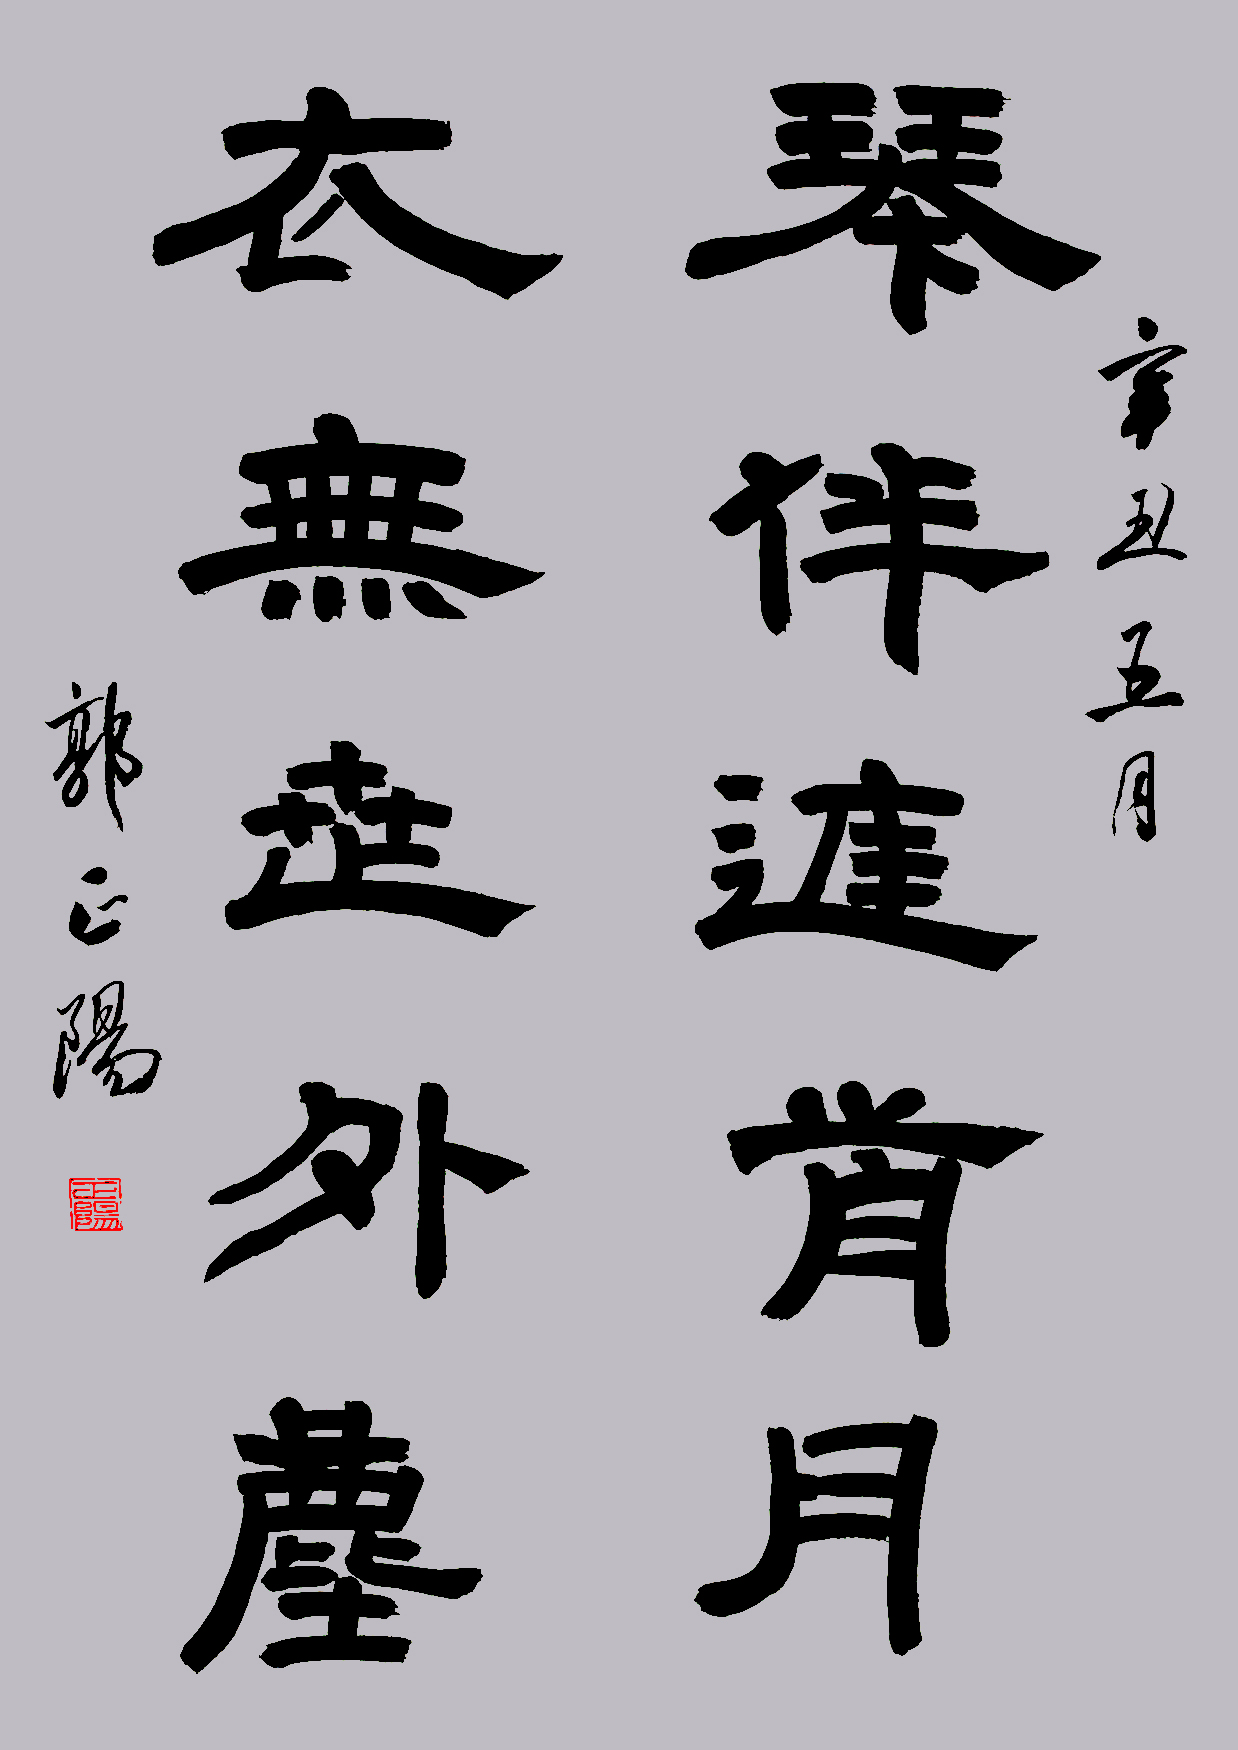 辛丑五月
琴伴庭前月
衣無世外塵
郭正陽